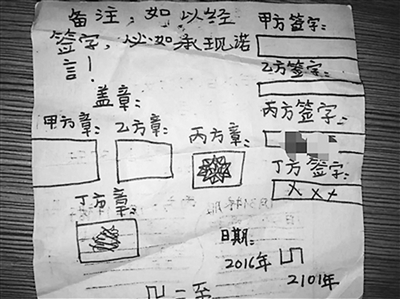 备注,如以经
签字,必如承现诺
言!
甲方签字:
乙方签字:
丙方签字:
丁方签字:
xxx
盖章:
甲方章:
乙方章:
丙方章:
丁方章:
日期:
2016年
2101年
二至